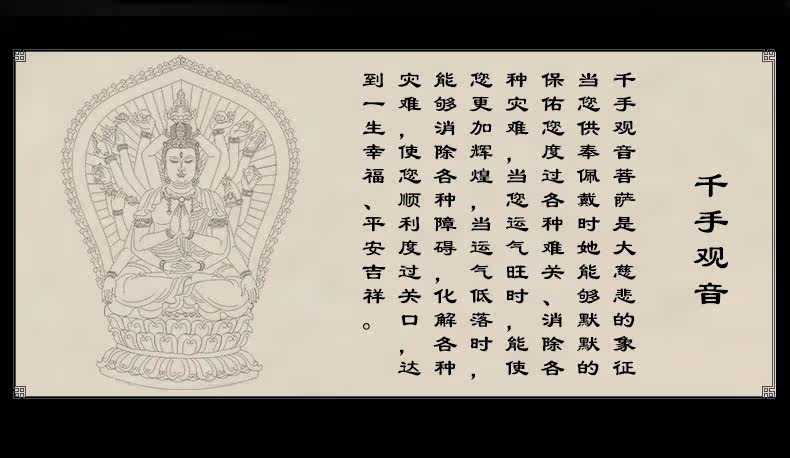 千手观音
千手观音菩萨是大慈悲的象征
当您供奉佩戴时她能够默默的
保佑您度过各种难关、消除各
种灾难，当您运气旺时，能使
您更加辉煌，当运气低落时，
能够消除各种障碍，化解各种
灾难，使您顺利度过关口，达
到一生幸福、平安吉祥。